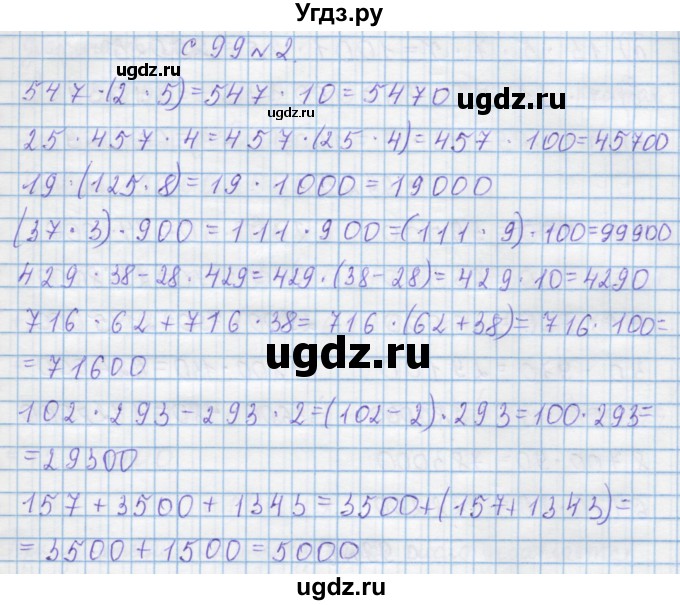 Угдз.ру
с 99 №2.
ugdz.ru
547 · (2 · 5) = 547 · 10 = 5470
ugdz.ru
25 · 457 · 4 = 457 · (25 · 4) = 457 · 100 = 45700
19 · (125 · 8) = 19 · 1000 = 19000
(37 · 3) · 900 = 111 · 900 = (111 · 9) · 100 = 99900
429 · 38 - 28 · 429 = 429 · (38 - 28) = 429 · 10 = 4290
716 · 62 + 716 · 38 = 716 · (62 + 38) = 716 · 100 =
ugdz.ru
= 71600
102 · 293 - 293 · 2 = (102 - 2) · 293 = 100 · 293 =
ugdz.ru
= 29300
157 + 3500 + 1343 = 3500 + (157 + 1343) =
= 3500 + 1500 = 5000
ugdz.ru